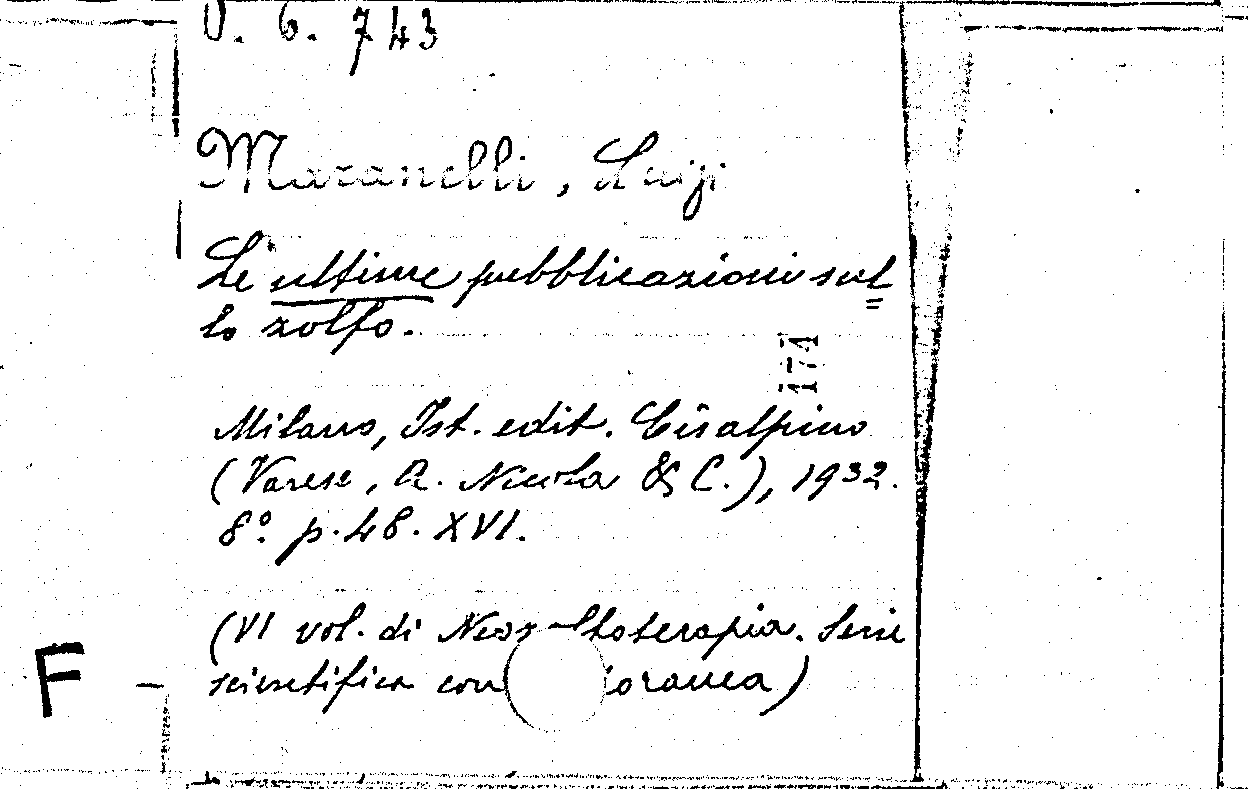 0. 6. 743
Maranelli, Luigi
Le ultime pubblicazioni sul
lo zolfo.
174
Milano, Ist. edit. Cisalpino
(Varese, A. Nicola & C.), 1932.
8º. p. 48. XVI.
(VI vol. di Serie
scientifica
F